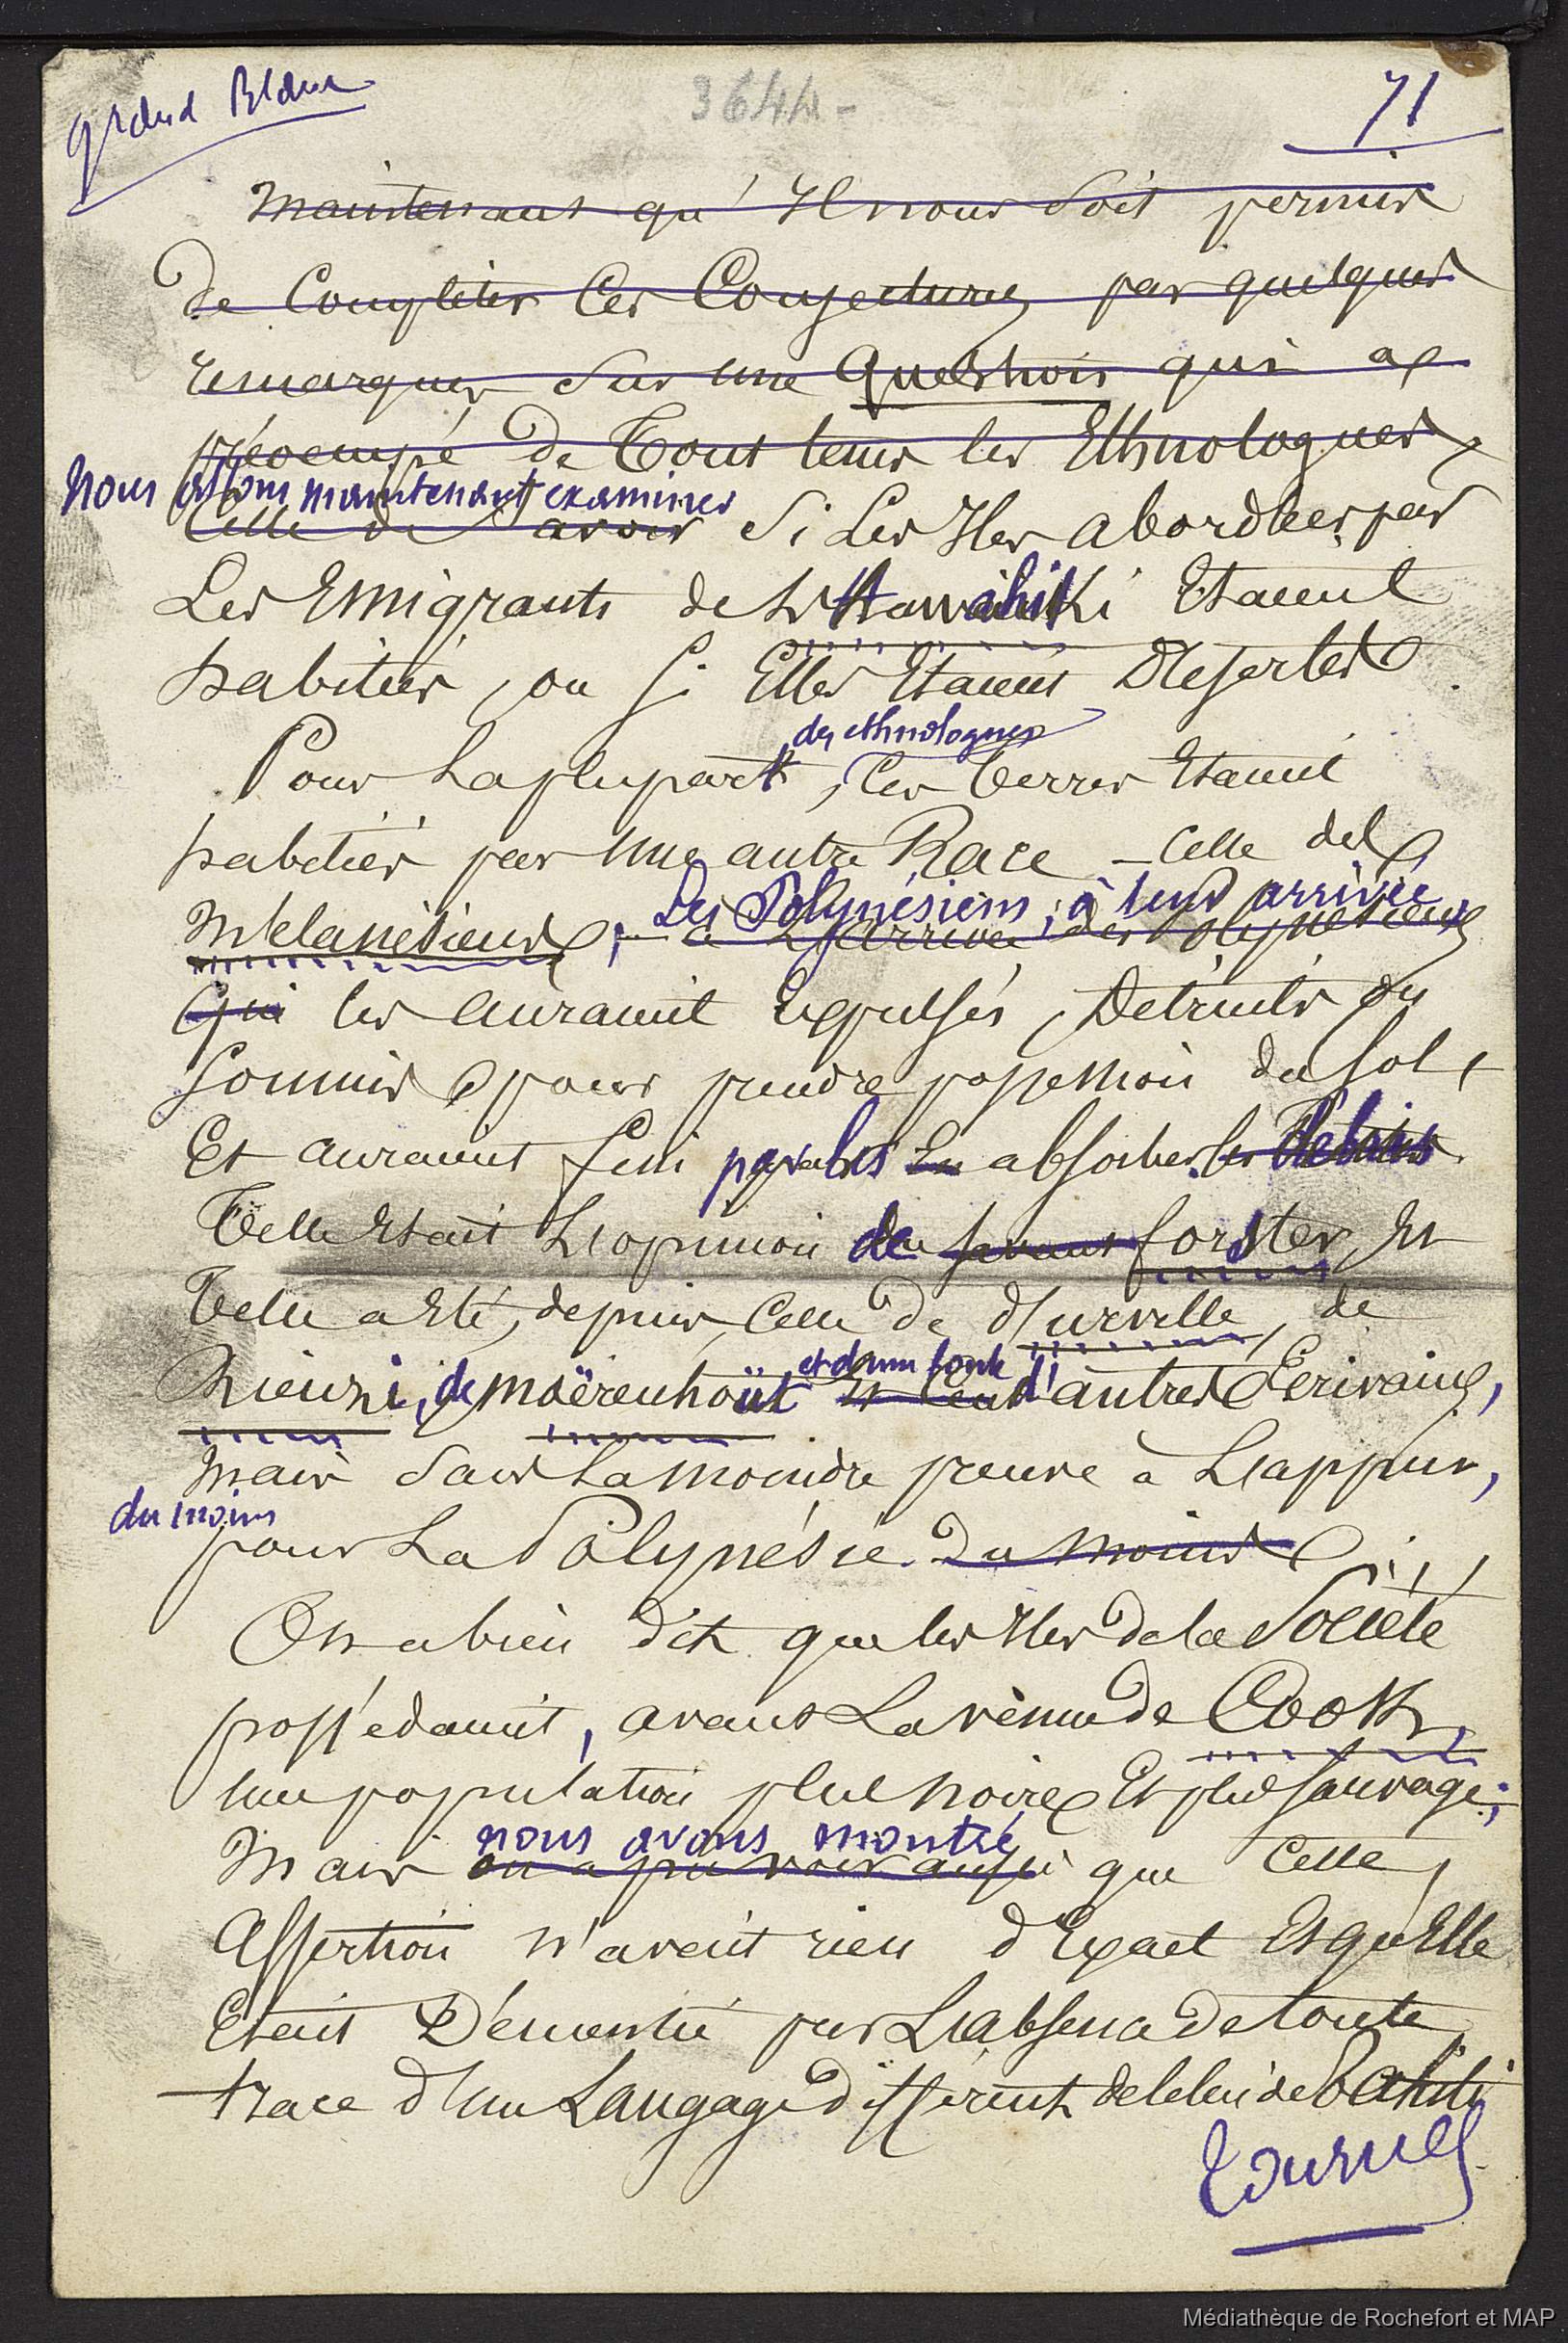 grand Blanc
3644 -
71
Maintenant qu'Il nous Soit permis
de Compléter Ces Conjectures par quelques
remarques Sur une Question qui a
préoccupé de Tout tems les Ethnologues,
nous allons maintenant examiner
Celle de savoir Si Les Iles abordées par
Les Emigrants de L'Hawahiki Etaient
habitées, ou Si Elles Etaient Désertes
des ethnologues
Pour La plupart, Ces Terres Etaient
habitées par Une autre Race - Celle des
Les Polynésiens, à leur arrivée,
Mélanésiens ; - à L'arrivée des Polynésiens
Qui les auraient Expulsés, Détruits ou
Soumis pour prendre possession du Sol,
Et auraient fini par les En absorber les débris
Telle Etait L'opinion de savant forster, Et
Telle a Eté, depuis, Celle de d'urville, de
et d'une foule
Rienzi, de Moërenhoüt Et Cent d'autres Ecrivains,
Mais Sans La moindre preuve à L'appui,
du moins
pour La Polynésie du Moins
On a bien dit que les Iles de la Société
possédaient, avant La venue de Cook,
une population plus noire Et plus Sauvage ;
nous avons montré
Mais on a pu voir aussi que Cette
Assertion n'avait rien d'Exact Et qu'Elle
Etait Démentie par L'absence de toute
trace d'un Langage différent de Celui de Tahiti
Tournez
Médiathèque de Rochefort et MAP